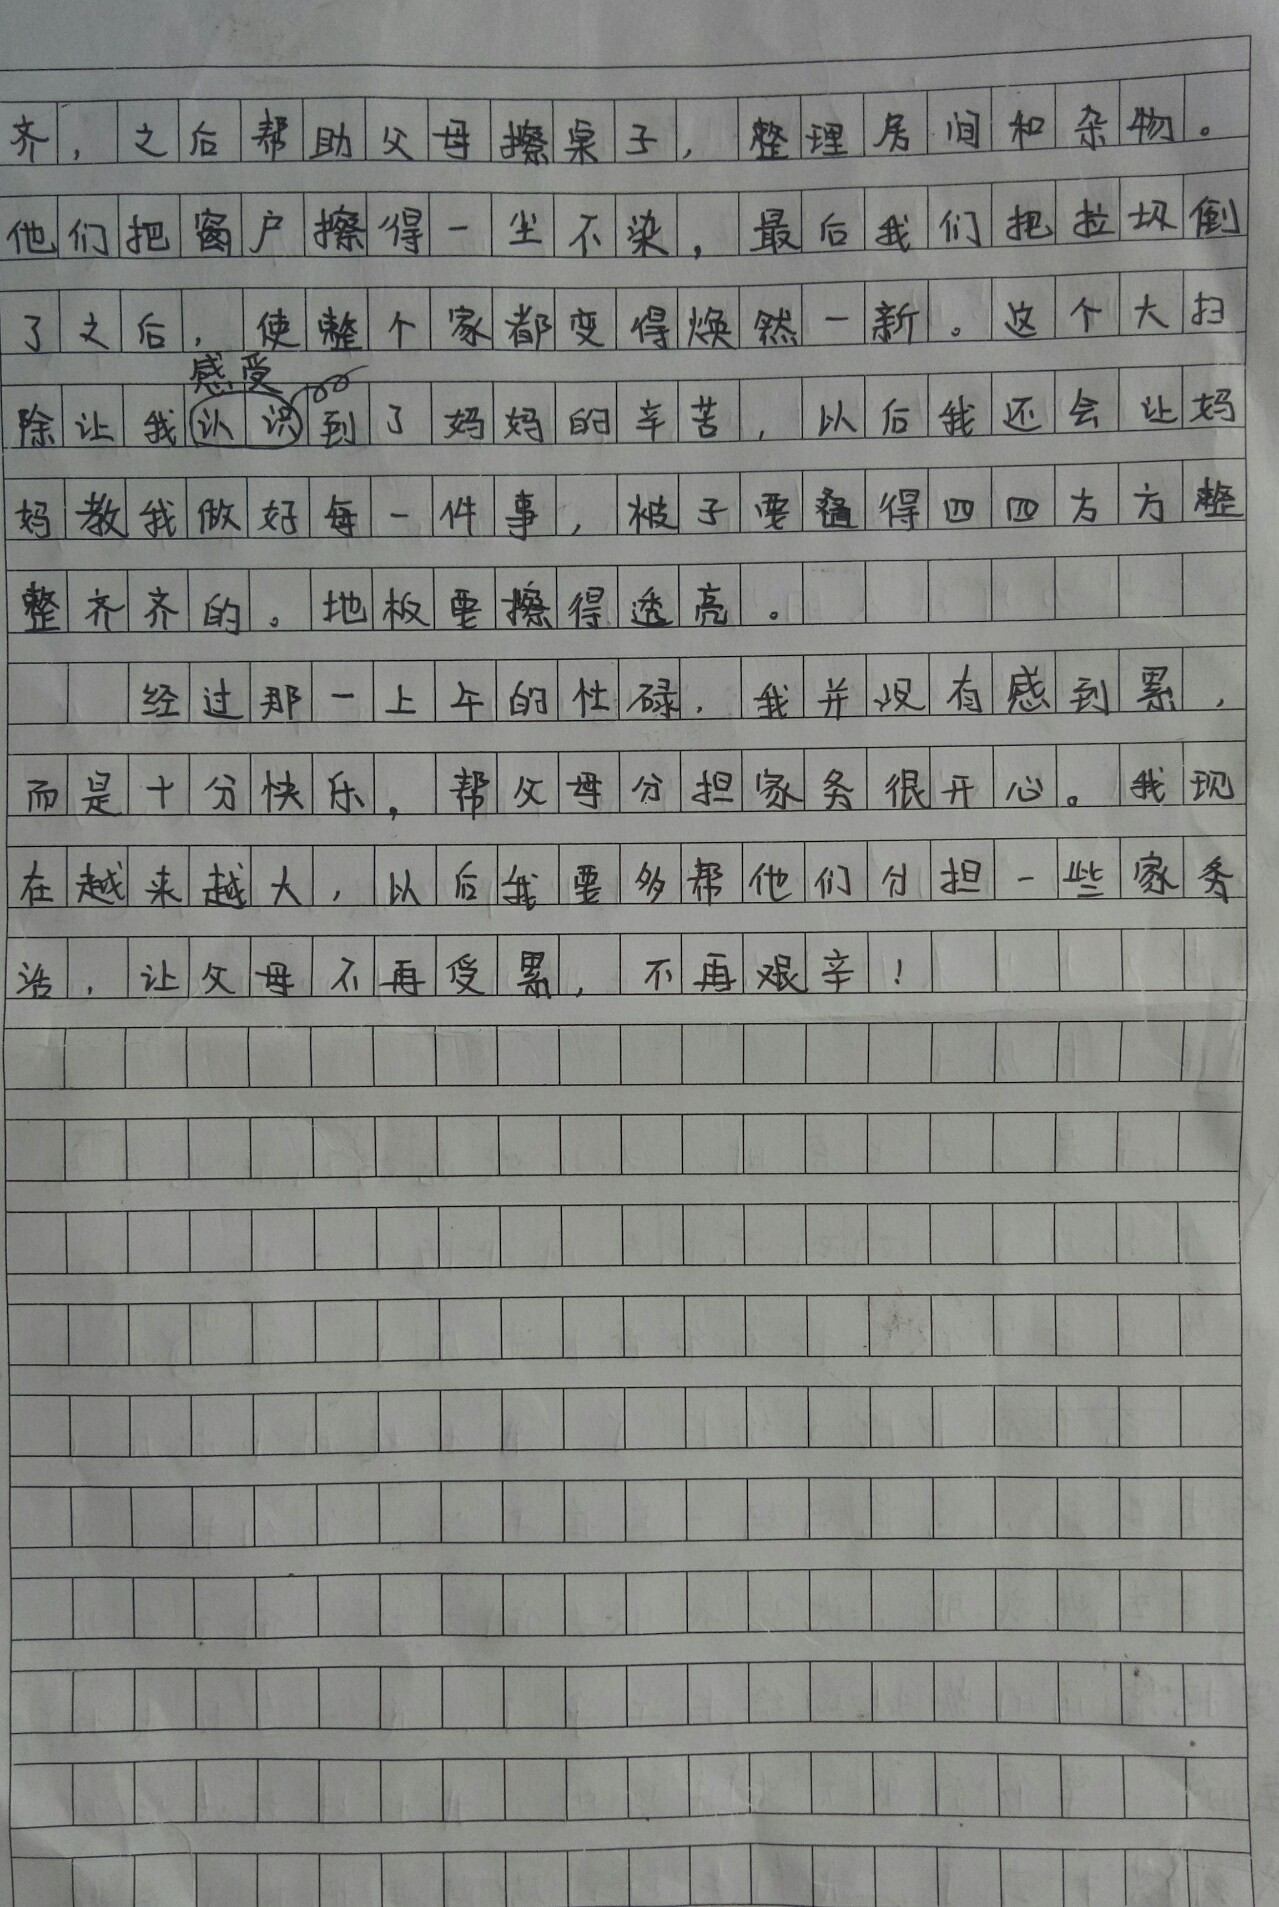 齐，之后帮助父母擦桌子，整理房间和杂物。
他们把窗户擦得一尘不染，最后我们把垃圾倒
了之后，使整个家都变得焕然一新。这个大扫
感受
除让我认识到了妈妈的辛苦，以后我还会让妈
妈教我做好每一件事，被子要叠得四四方方整
整齐齐的。地板要擦得透亮。
经过那一上午的忙碌，我并没有感到累，
而是十分快乐，帮父母分担家务很开心。我现
在越来越大，以后我要多帮他们分担一些家务
活，让父母不再受累，不再艰辛！